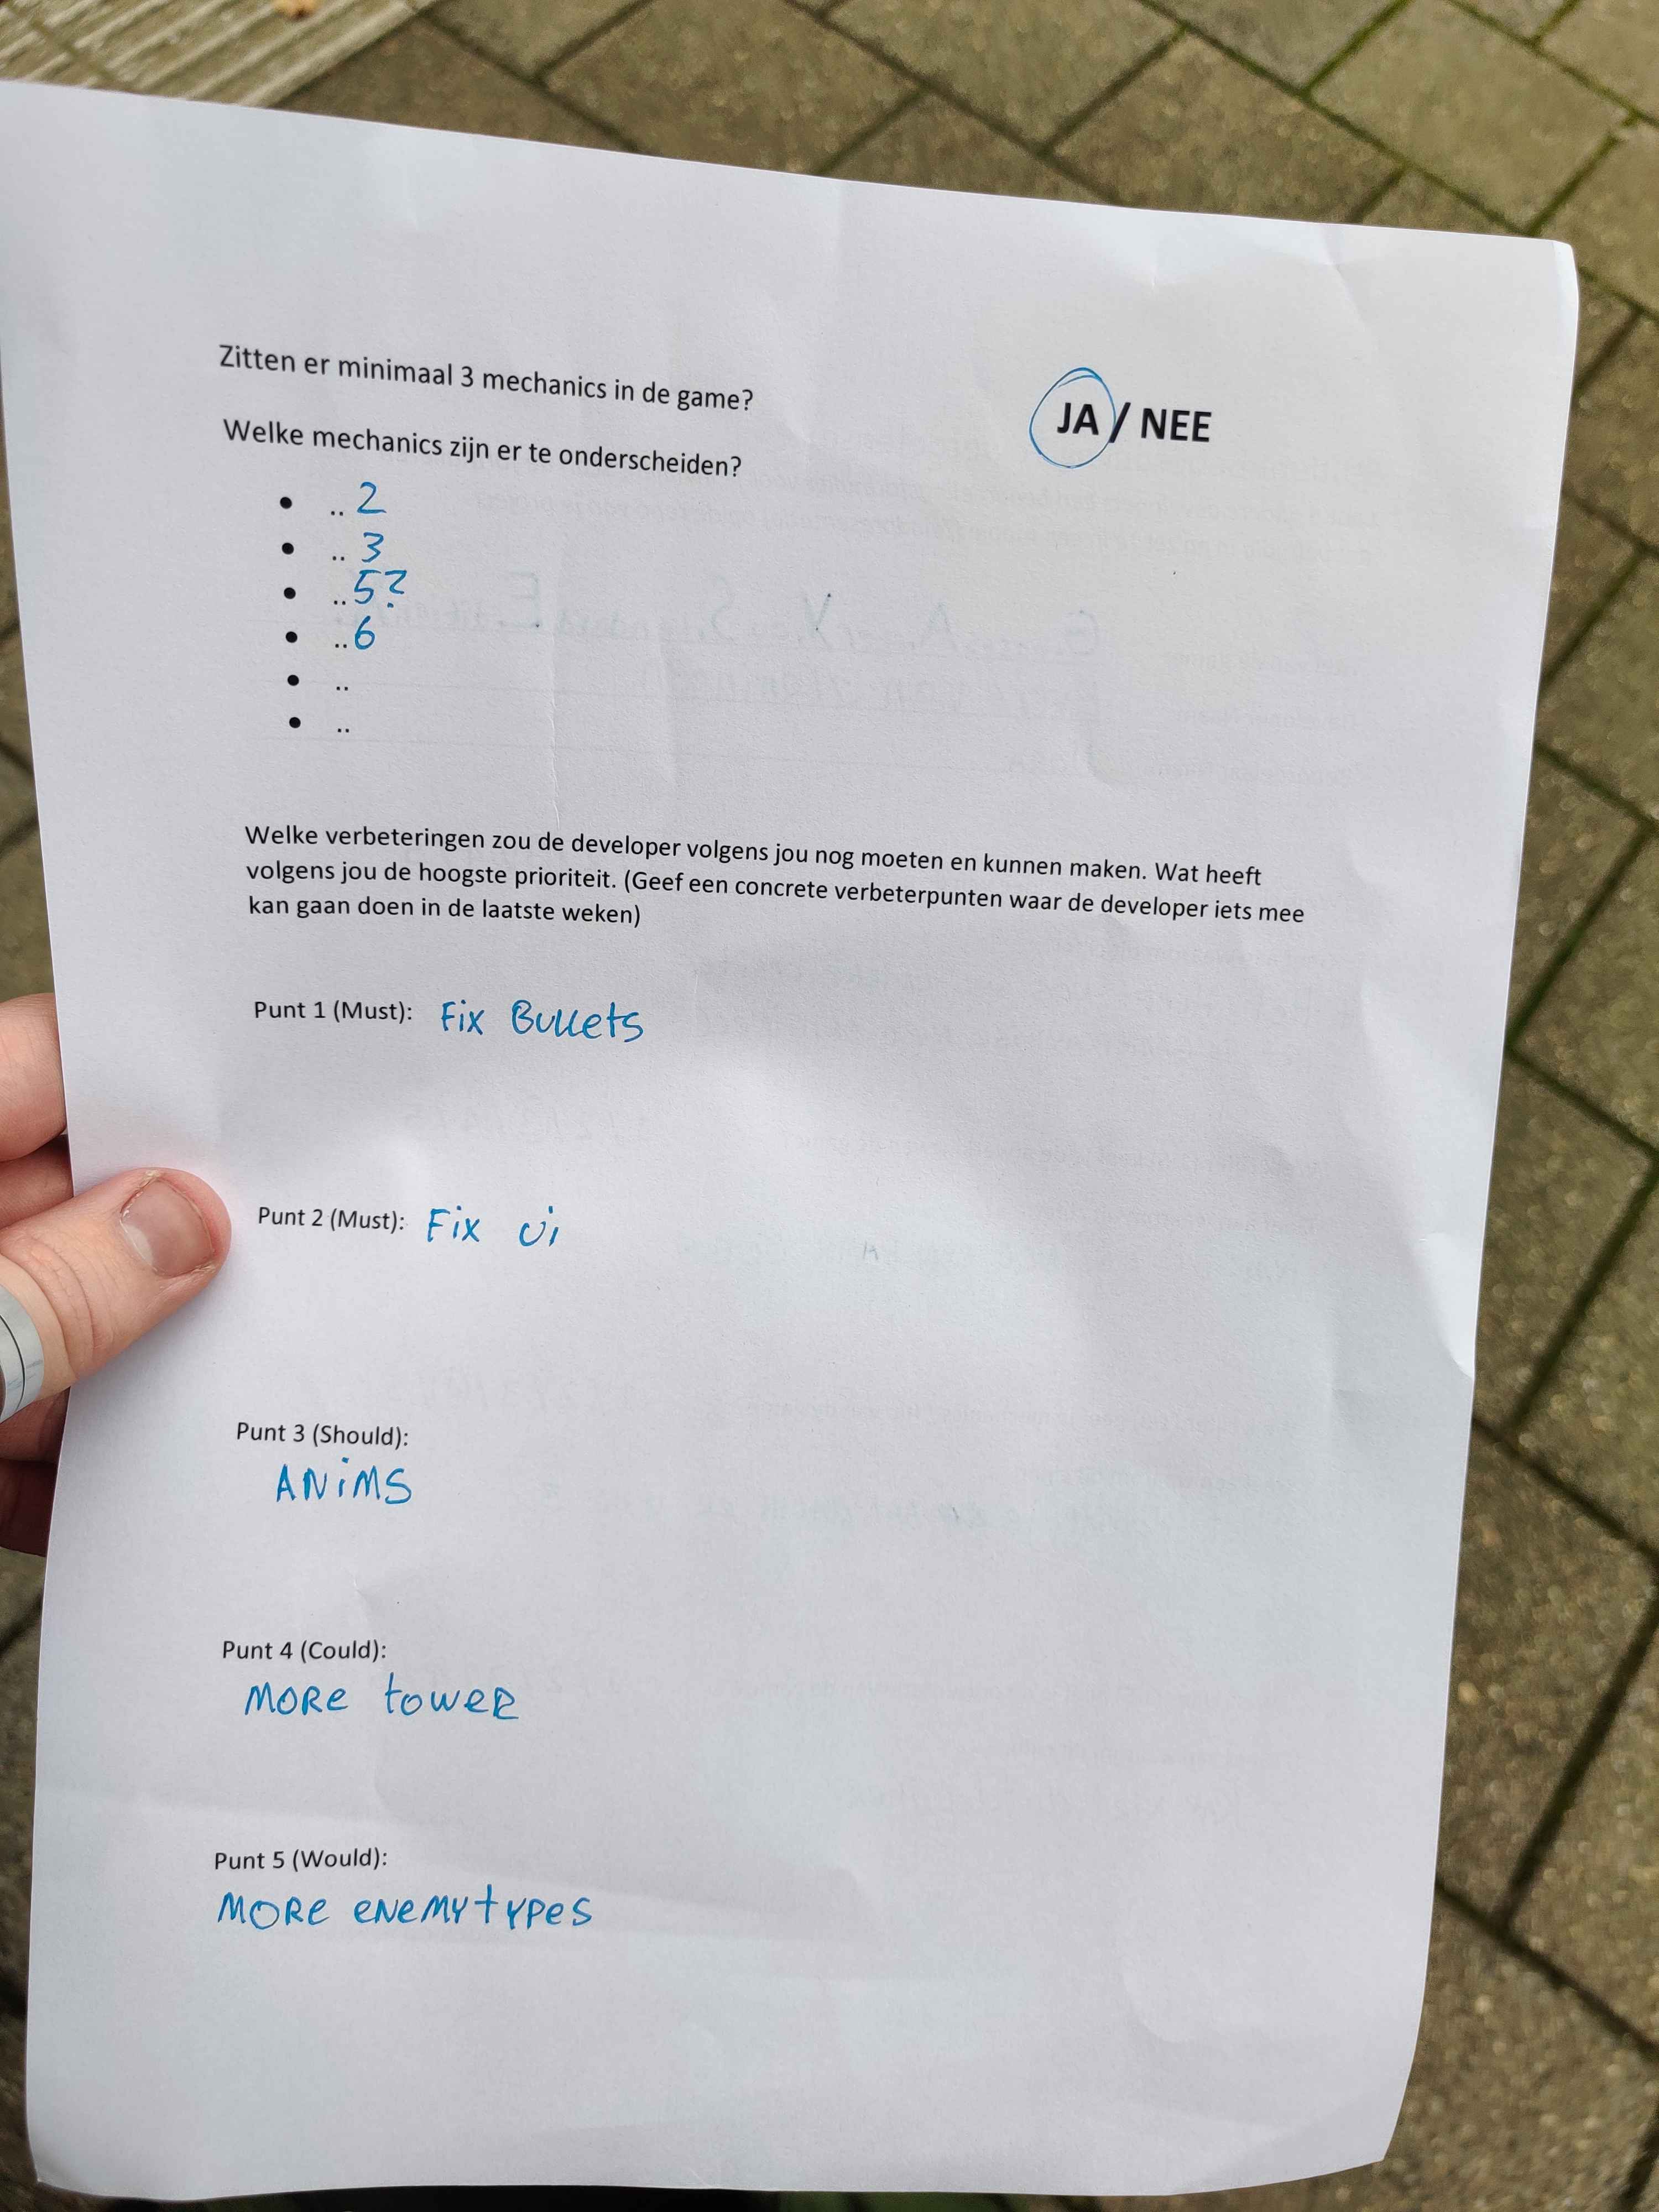 Zitten er minimaal 3 mechanics in de game?
JA / NEE
Welke mechanics zijn er te onderscheiden?
• .. 2
• .. 3
• .. 5?
• .. 6
• ..
• ..
Welke verbeteringen zou de developer volgens jou nog moeten en kunnen maken. Wat heeft
volgens jou de hoogste prioriteit. (Geef een concrete verbeterpunten waar de developer iets mee
kan gaan doen in de laatste weken)
Punt 1 (Must): Fix Bullets
Punt 2 (Must): Fix Ui
Punt 3 (Should):
ANiMS
Punt 4 (Could):
MORe toweR
Punt 5 (Would):
MORe eNeMYtYPeS